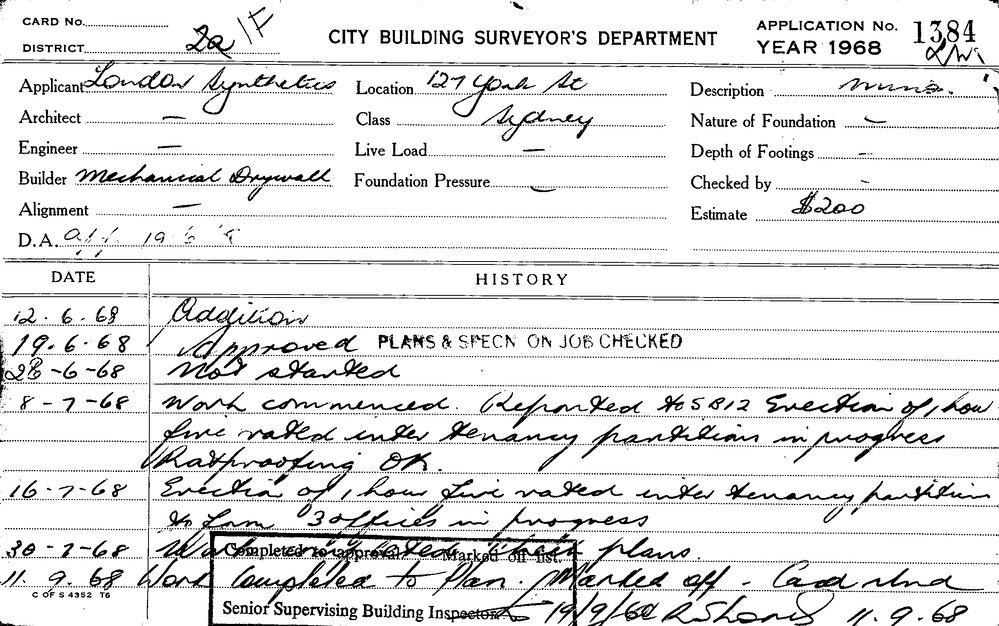 CARD No.
DISTRICT 2a/F
CITY BUILDING SURVEYOR'S DEPARTMENT
APPLICATION No. 1384
YEAR 1968
Applicant London Synthetics
Location 127 York St
Description
Architect —
Class Sydney
Nature of Foundation —
Engineer —
Live Load —
Depth of Footings —
Builder Mechanical Drywall
Foundation Pressure —
Checked by -
Alignment —
Estimate $200
D.A. app. 19 6
DATE HISTORY
12.6.68 Addition
19.6.68 Approved PLANS & SPECN ON JOB CHECKED
28-6-68 Not started
8-7-68 Work commenced. Reported to S812 Erection of 1 hour
fire rated inter tenancy partitions in progress
Ratproofing OK.
16-7-68 Erection of 1 hour fire rated inter tenancy partition
to form 3 offices in progress
30-7-68 plans.
Completed to approval. Marked off list.
11.9.68 Work Completed to Plan. Marked off - Card
C OF S 4352 T6
Senior Supervising Building Inspector 19/9/68 11.9.68